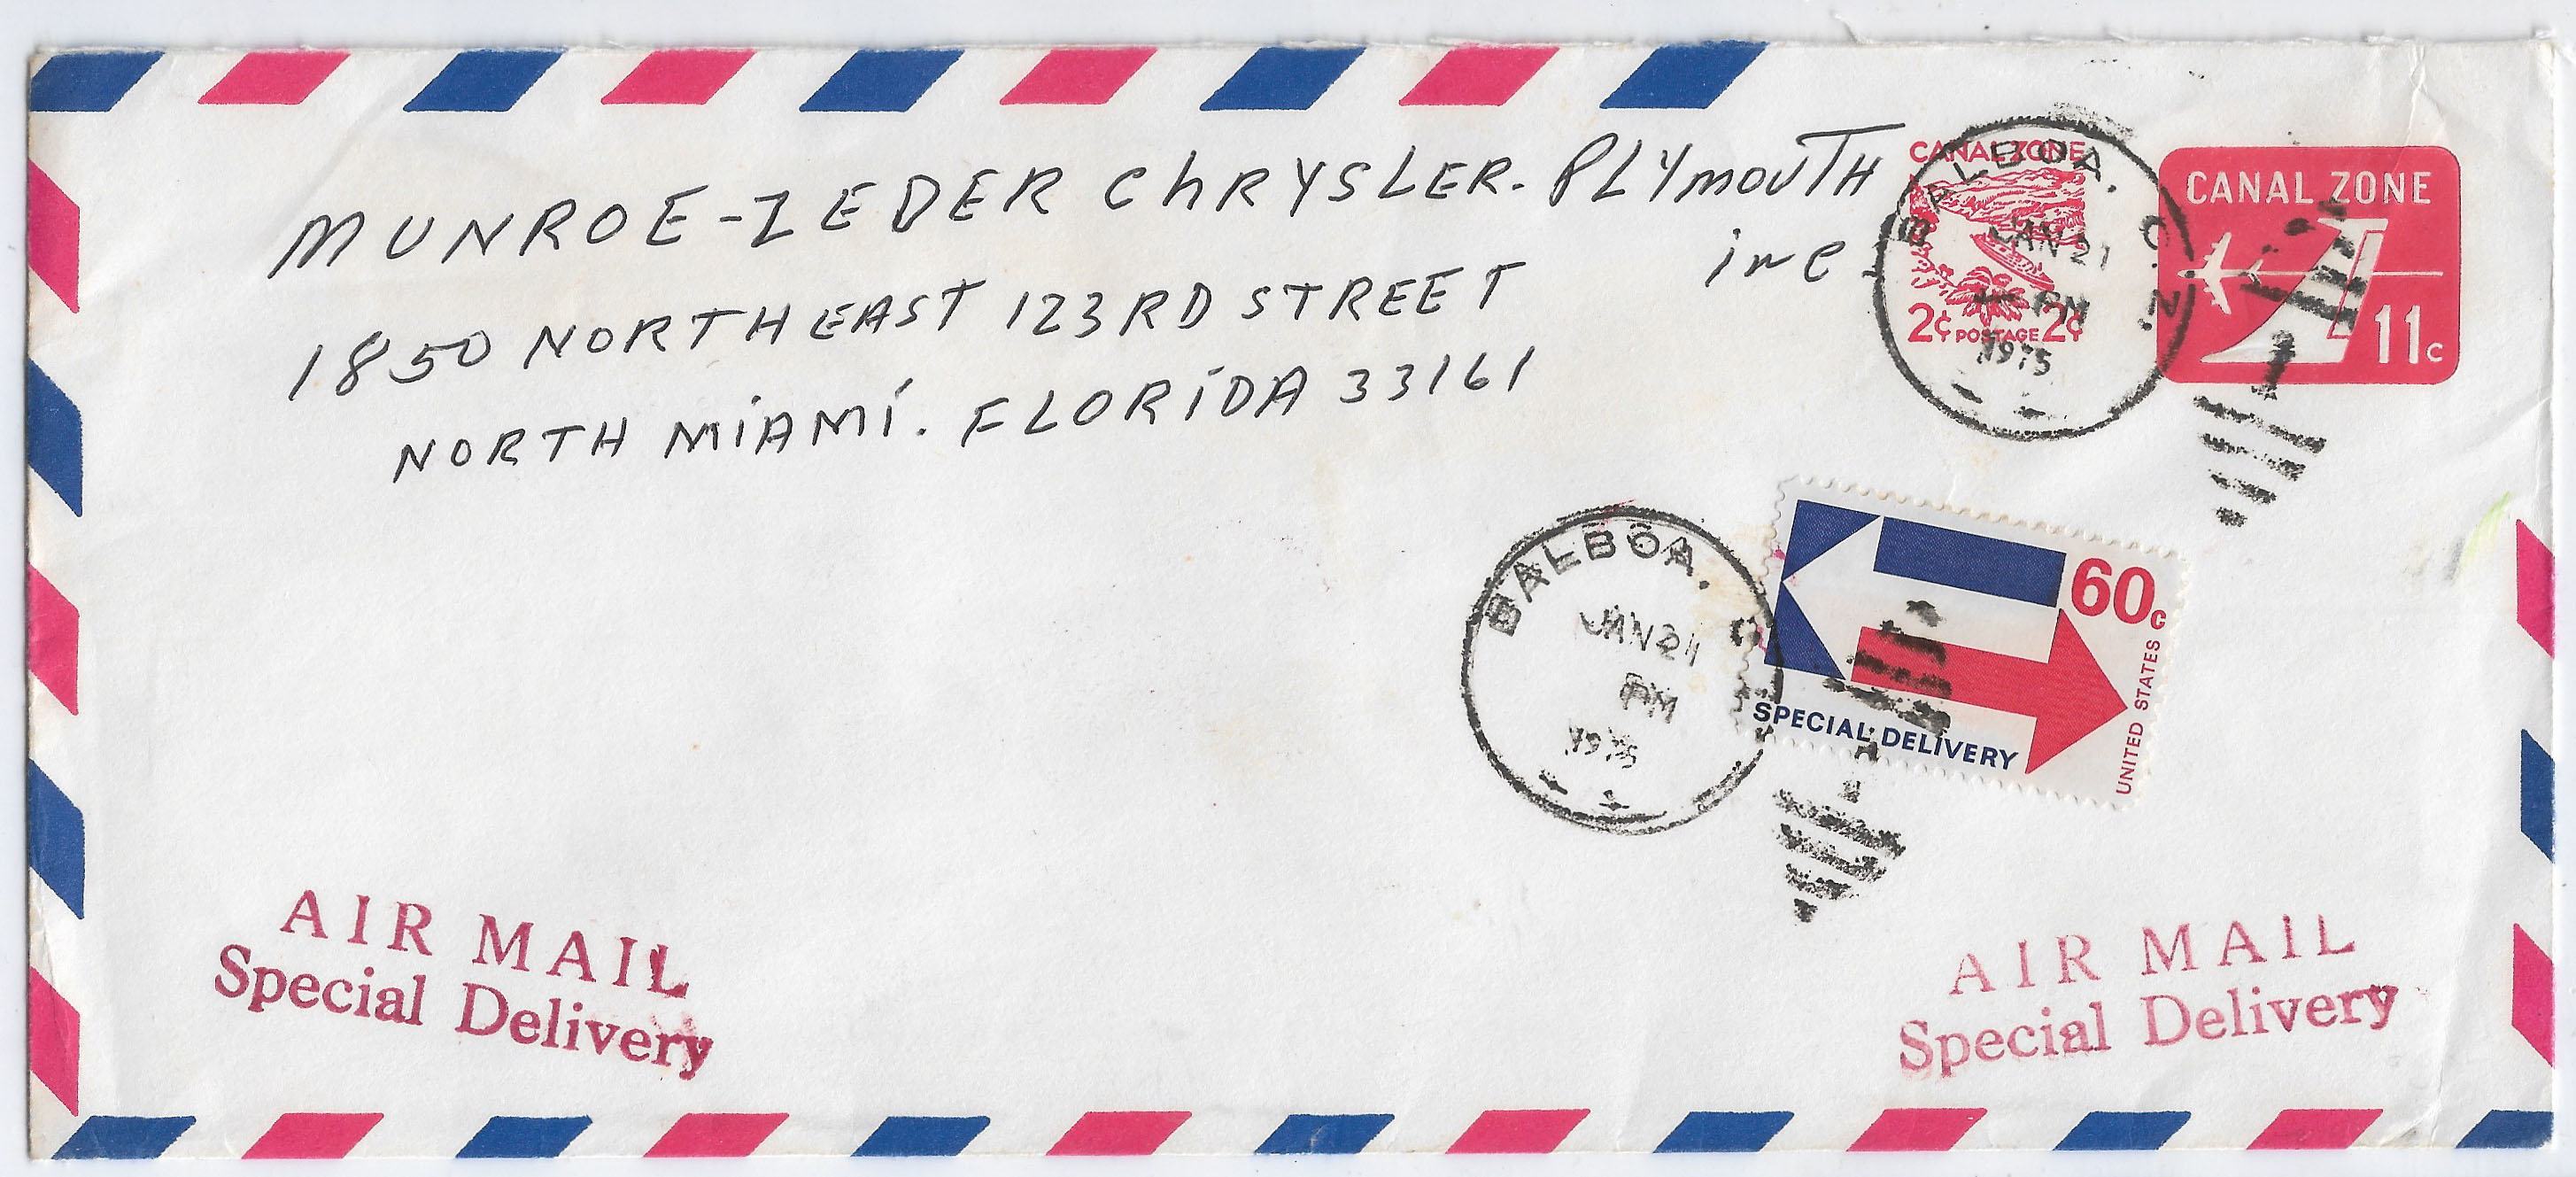 MUNROE-ZEDER ChRYSLER. PLYMOUTH
inc
1850 NORTHEAST 123RD STREET
NORTH MiAMi. FLORiDA 33161
CANAL ZONE
2¢ POSTAGE 2¢
BALBOA. C. Z.
JAN 21
PM
1975
CANAL ZONE
11c
BALBOA. C
JAN 21
PM
1975
60c
UNITED STATES
SPECIAL DELIVERY
AIR MAIL
Special Delivery
AIR MAIL
Special Delivery